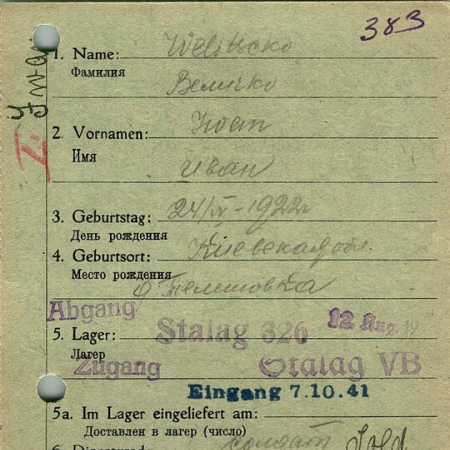 383
1. Name: Welitscko
Фамилия Величко
2. Vornamen: Iwan
Имя Иван
3. Geburtstag: 24/IV-1922г
День рождения
4. Geburtsort: Киевская обл.
Место рождения
Abgang
5. Lager: Stalag 326 12 Aug.
Лагер
Zugang Stalag VB
Eingang 7.10.41
5a. Im Lager eingeliefert am:
Доставлен в лагер (число)
солдат Sold